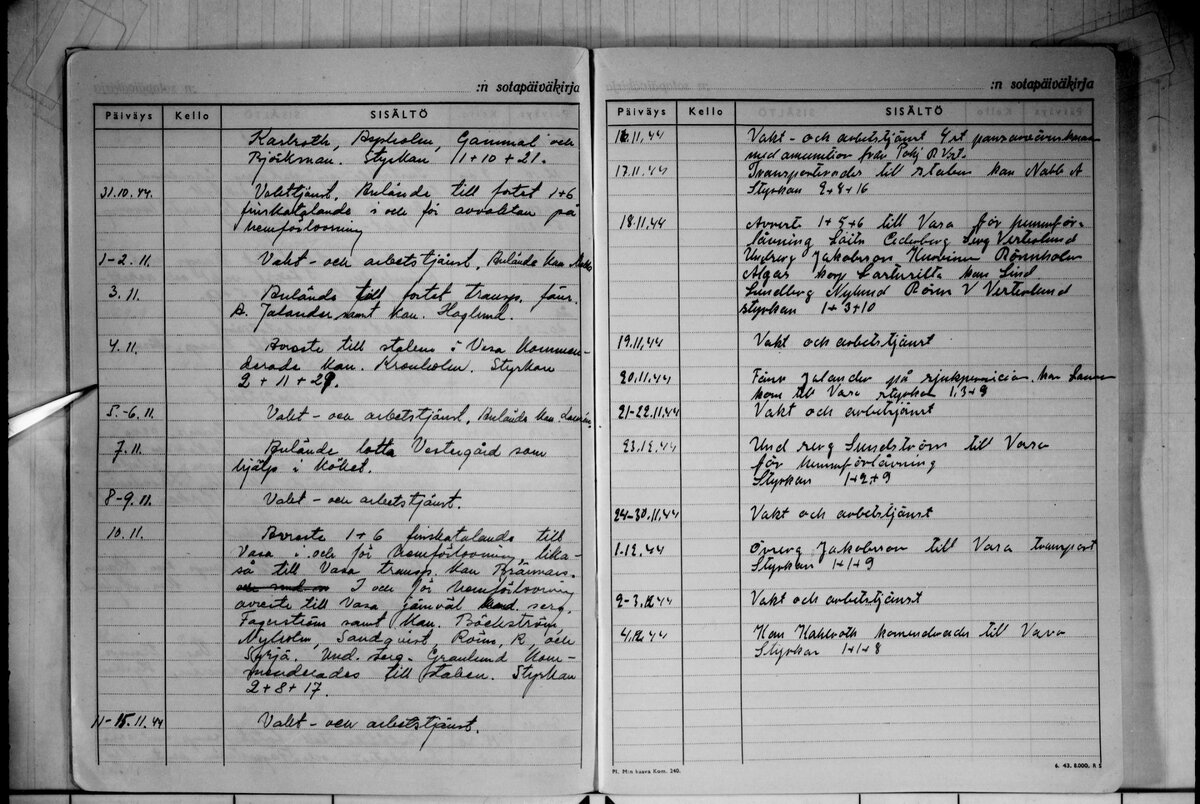 :n sotapäiväkirja
Päiväys Kello SISÄLTÖ
Karlroth, Aspholm, Gammal och
Björkman. Styrkan 11+10+21.
31.10.44. Vakttjänst. Anlände till fortet 1+6
finsktalande i och för avvaktan på
hemförlovning
1-2.11. Vakt- och arbetstjänst. Anlände kan.
3.11. Anlände till fortet transp. fänr.
B. Jalander samt kan. Haglund.
4.11. Avreste till staben i Vasa kommen-
derade kan. Kronholm. Styrkan
2+11+29.
5.-6.11. Vakt- och arbetstjänst. Anlände kan
7.11. Anlände lotta Vestergård som
hjälp i köket.
8-9.11. Vakt- och arbetstjänst.
10.11. Avreste 1+6 finsktalande till
Vasa i och för hemförlovning, lika-
så till Vasa transp. kan
I och för hemförlovning
avreste till Vasa jämväl serg.
Fagerström samt kan. Böckström,
Nyholm, Sandqvist, Röns, R. och
Syrjä. Und. serg. Granlund kom-
menderades till staben. Styrkan
2+8+17.
11-15.11.44 Vakt- och arbetstjänst.
:n sotapäiväkirja
Päiväys Kello SISÄLTÖ
16.11.44 Vakt- och arbetstjänst 4 st
med amunition från Pohj R Vst.
17.11.44 Transporterades till staben kan Nabb A
Styrkan 2+8+16
18.11.44 Avreste 1+5+6 till Vasa för hemför-
lovning Cederberg Serg Vesterlund
Undserg Jakobsson Rönnholm
Algars korp kan Lind
Sundberg Nylund Rönn V Vesterlund
styrkan 1+3+10
19.11.44 Vakt och arbetstjänst
20.11.44 Fänr Jalander på kan
kom till Vasa styrkan 1,3+9
21-22.11.44 Vakt och arbetstjänst
23.12.44 Und serg Sundström till Vasa
för hemförlovning
Styrkan 1+2+9
24-30.11.44 Vakt och arbetstjänst
1.12.44 Jakobsson till Vasa transport
Styrkan 1+1+9
2-3.12.44 Vakt och arbetstjänst
4.12.44 Kan Kahlroth komenderades till Vasa
Styrkan 1+1+8
Pl. Min kaava Kom. 240.
6. 43. 8.000, R S